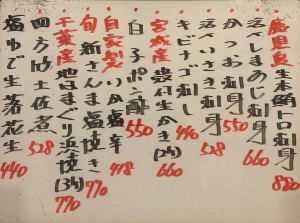 鹿児島 生本鮪トロ刺身 880
活〆しまあじ刺身 660
かつお刺身 550
活〆いさき刺身 528
キビナゴ刺 440
宮城産 殻付生かき(2ケ) 660
白子ポン酢 550
自家製 いか塩辛 418
旬 新さんま塩焼き 770
千葉産 地はまぐり浜焼(3ケ) 770
四方竹土佐煮 528
塩ゆで生落花生 440